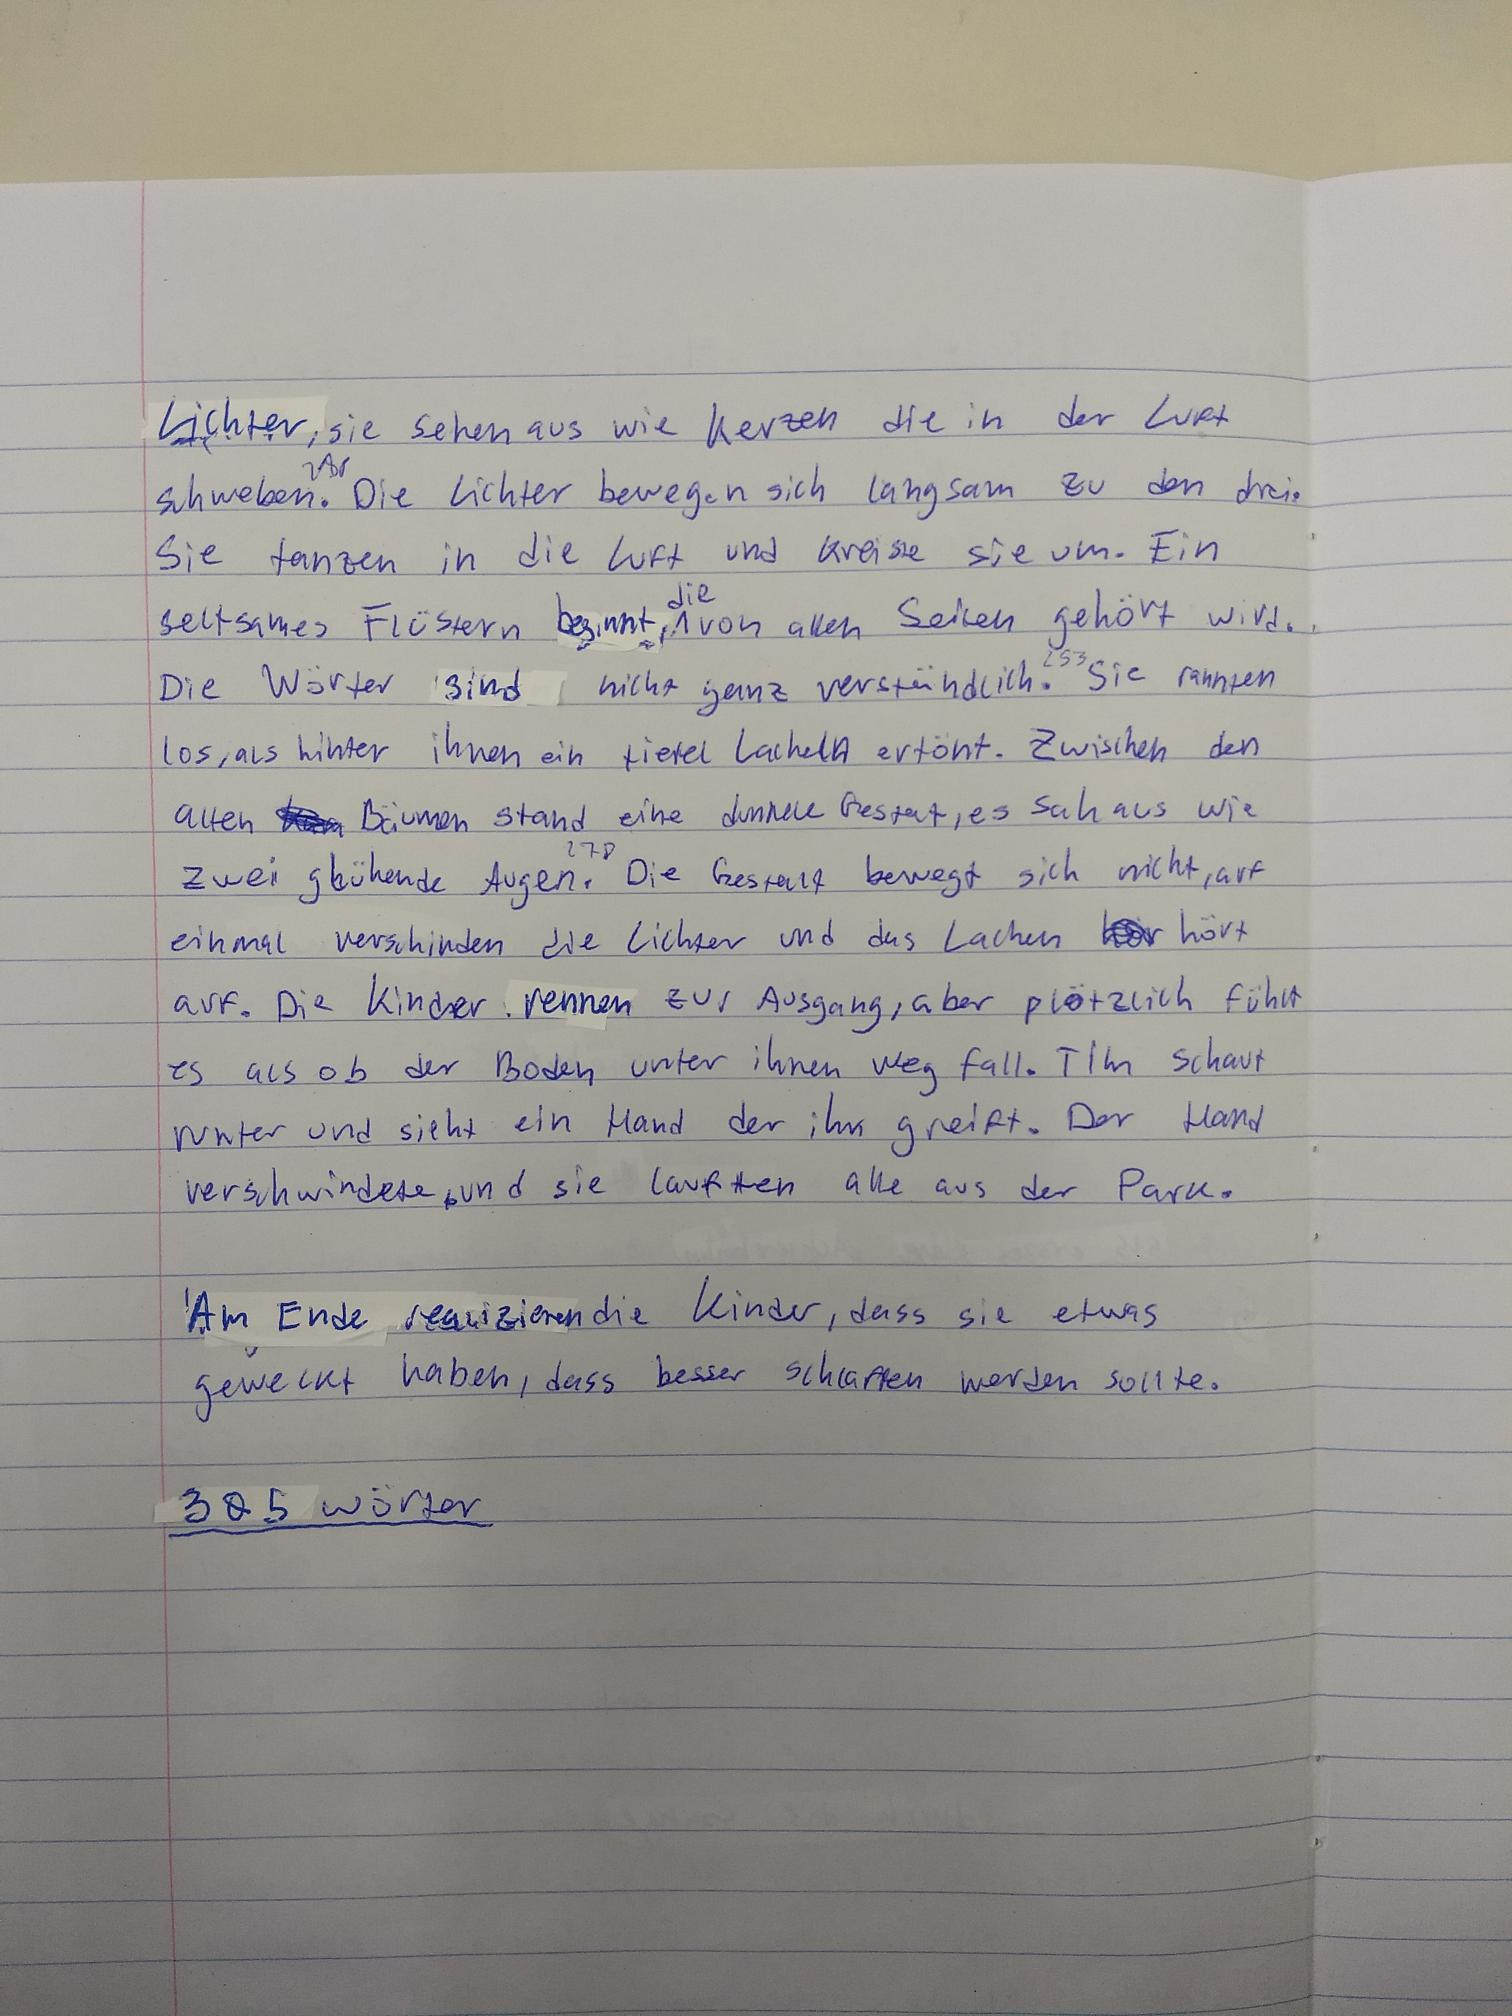 Lichter, sie sehen aus wie Kerzen die in der Luft
schweben. Die Lichter bewegen sich langsam zu den drei.
Sie tanzen in die Luft und kreise sie um. Ein
seltsames Flüstern beginnt, die von allen Seiten gehört wird.
Die Wörter sind nicht ganz verständlich. 253 Sie rannten
los, als hinter ihnen ein tiefel Lacheln ertönt. Zwischen den
alten Bäumen stand eine dunkele Gestat, es sah aus wie
zwei glühende Augen. 278 Die Gestalt bewegt sich nicht, auf
einmal verschinden die Lichter und das Lachen hört
auf. Die Kinder rennen zur Ausgang, aber plötzlich fühlt
es als ob der Boden unter ihnen weg fall. Tim schaut
runter und sieht ein Hand der ihn greift. Der Hand
verschwindete, und sie lauften alle aus der Park.
Am Ende realizieren die Kinder, dass sie etwas
geweckt haben, dass besser schlaffen werden sollte.
385 Wörter